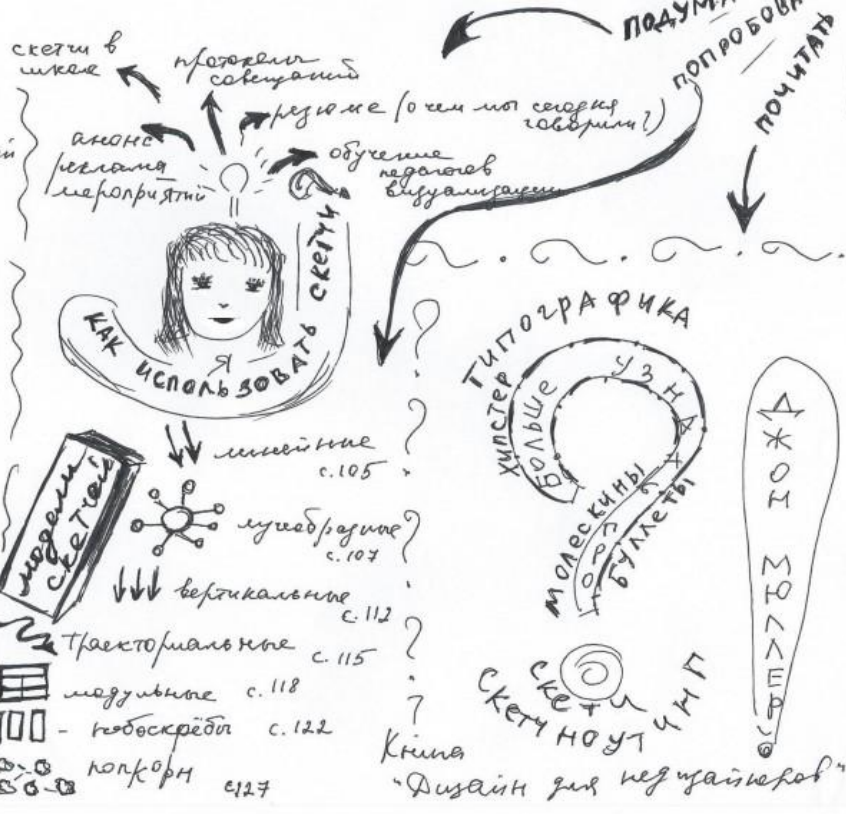 ПОДУМА
ПОПРОБОВА
ПОЧИТАТЬ
скетчи в
школе
протоколы
совещаний
резюме (о чем мы сегодня
говорили?)
анонс
реклама
мероприятий
обучение
педагогов
визуализации
Я
КАК ИСПОЛЬЗОВАТЬ СКЕТЧИ
модели
скетчей
линейные
с.105
лучеобразные
с.107
вертикальные
с.112
траекториальные
с.115
модульные с.118
- небоскрёбы с.122
попкорн
с127
ХИПСТЕР
ТИПОГРАФИКА
БОЛЬШЕ
УЗНАТЬ
ПРО
МОЛЕСКИНЫ
БУЛЛЕТЫ
скетч
СКЕТЧНОУТИНГ
ДЖОН
МЮЛЛЕР
Книга
"Дизайн для недизайнеров"